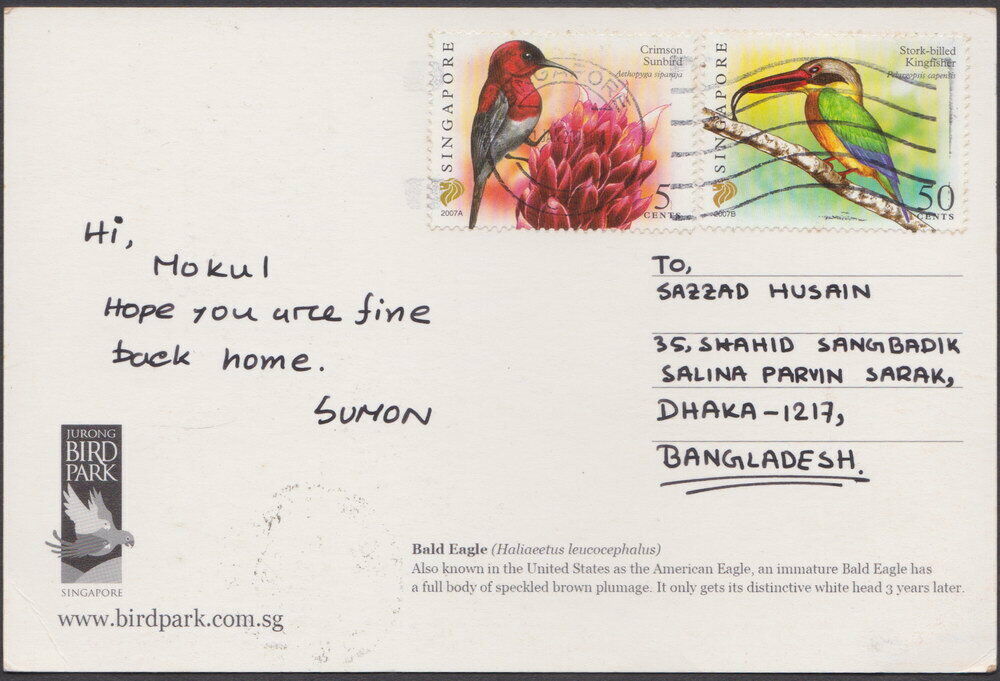 SINGAPORE
Crimson
Sunbird
Aethopyga siparaja
2007A
5
CENTS
SINGAPORE
Stork-billed
Kingfisher
Pelargopsis capensis
2007B
50
CENTS
Hi,
Mokul
Hope you are fine
back home.
SUMON
TO,
SAZZAD HUSAIN
35, SHAHID SANGBADIK
SALINA PARVIN SARAK,
DHAKA-1217,
BANGLADESH.
JURONG
BIRD
PARK
SINGAPORE
www.birdpark.com.sg
Bald Eagle (Haliaeetus leucocephalus)
Also known in the United States as the American Eagle, an immature Bald Eagle has
a full body of speckled brown plumage. It only gets its distinctive white head 3 years later.